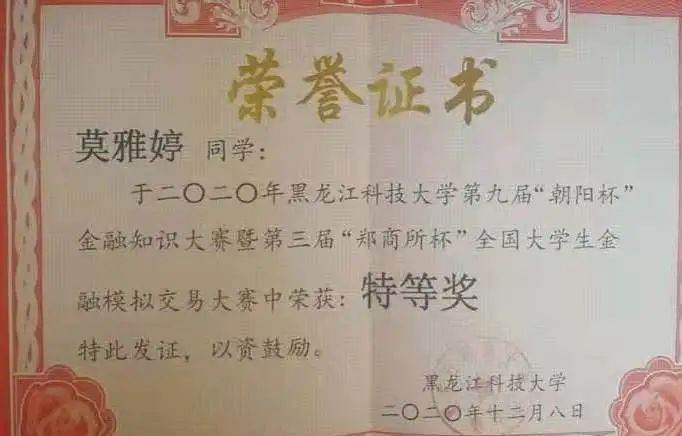 荣誉证书
莫雅婷 同学：
于二〇二〇年黑龙江科技大学第九届“朝阳杯”
金融知识大赛暨第三届“郑商所杯”全国大学生金
融模拟交易大赛中荣获：特等奖
特此发证，以资鼓励。
黑龙江科技大学
二〇二〇年十二月八日